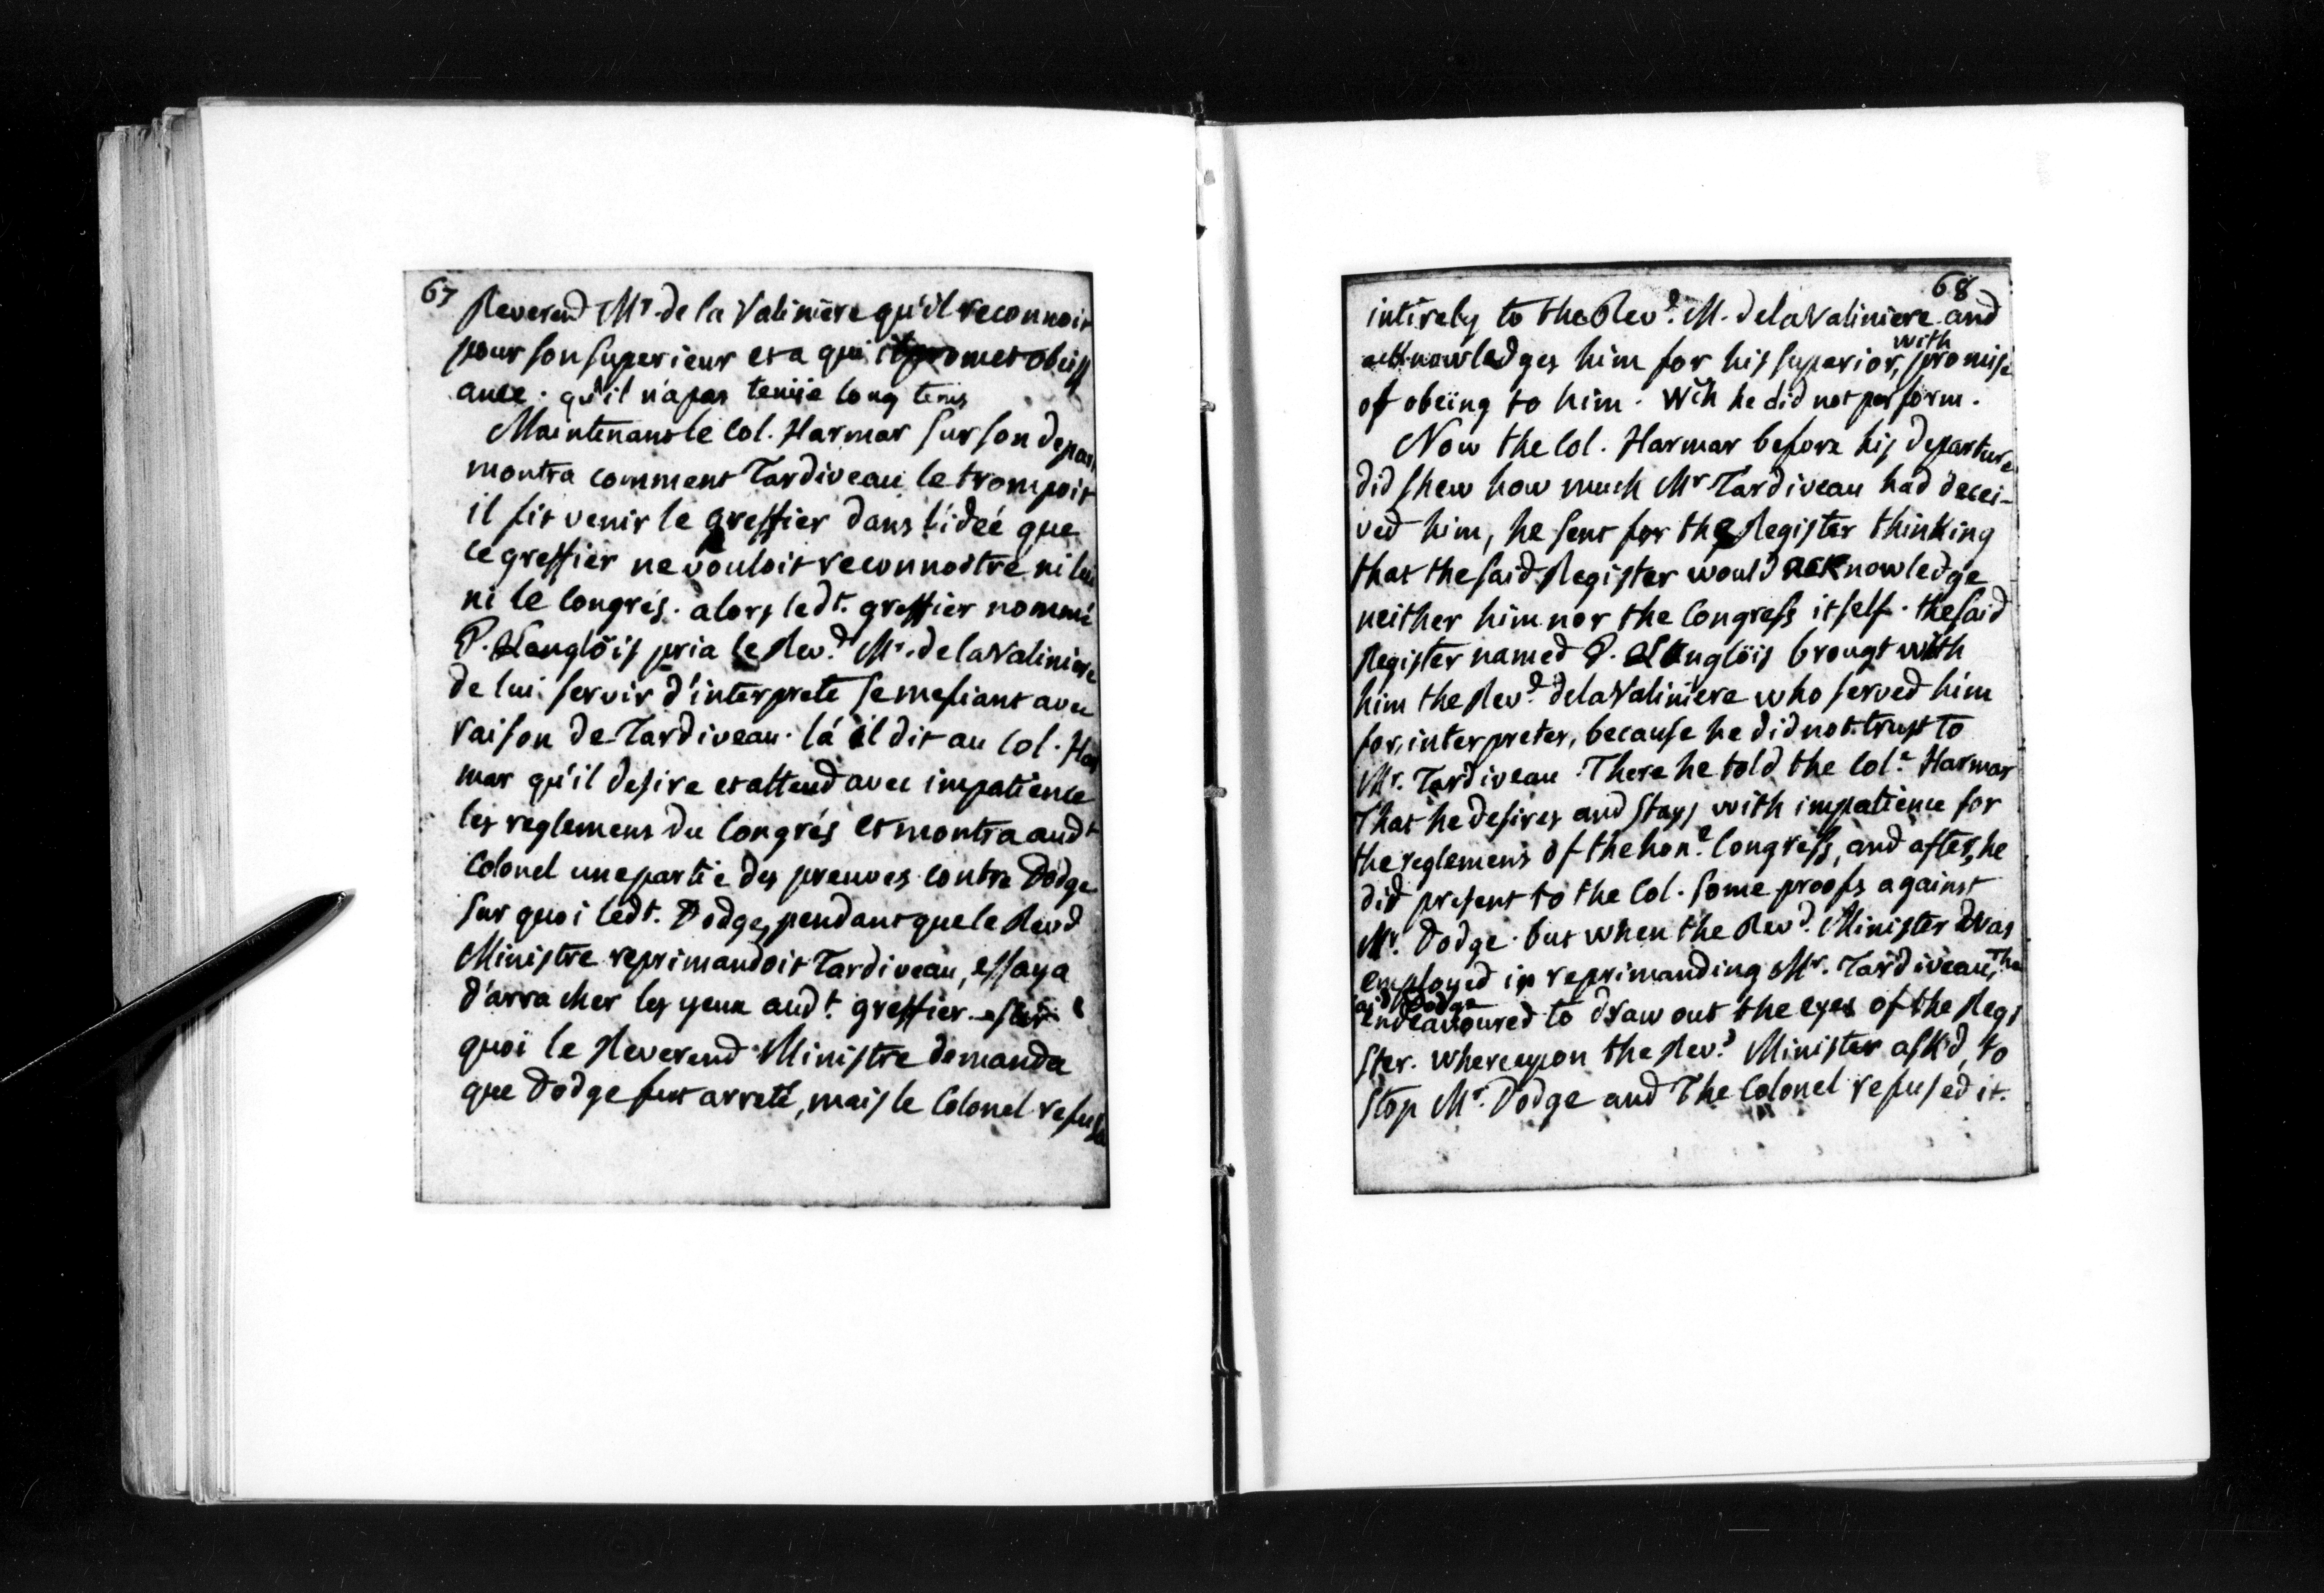 67
Reverend Mr. de la Valiniere qu'il reconnoit
pour son superieur et a qui il promet obeiss
ance. qu'il n'a pas tenüe long tems
Maintenant le Col. Harmar sur son depart
montra comment Tardiveau le trompoit
il fit venir le greffier dans l'idée que
ce greffier ne vouloit reconnoitre ni lui
ni le Congrés. alors ledt. greffier nommé
P. Langlöis pria le Revd. Mr. de la Valiniere
de lui servir d'interprete se mefiant avec
raison de Tardiveau. là il dit au Col. Har
mar qu'il desire et attend avec impatience
les reglemens du Congrés et montra audt
Colonel une partie des preuves contre Dodge
sur quoi ledt. Dodge, pendant que le Revd
Ministre reprimandoit Tardiveau, essaya
d'arracher les yeux audt. greffier. sur
quoi le Reverend Ministre demanda
que Dodge fut arreté, mais le Colonel refusa
68
intirely to the Revd. M. de la Valiniere and
acknowledges him for his superior, with promise
of obeïng to him. Wch he did not perform.
Now the Col. Harmar before his departure
did shew how much Mr Tardiveau had decei-
ved him, he sent for the Register thinking
that the said Register would acknowledge
neither him nor the Congress itself. the said
Register named P. Langlöis brougt with
him the Revd. de la Valiniere who served him
for, interpreter, because he did not trust to
Mr. Tardiveau. There he told the Col. Harmar
That he desires and stays with impatience for
the reglemens of the hon. Congress, and after, he
did present to the Col. some proofs against
Mr. Dodge. but when the Revd. Minister was
employed in reprimanding Mr. Tardiveau, The
said Dodge
endeavoured to draw out the eyes of the Regi
ster. whereupon the Revd. Minister ask'd, to
stop Mr. Dodge and The Colonel refused it.